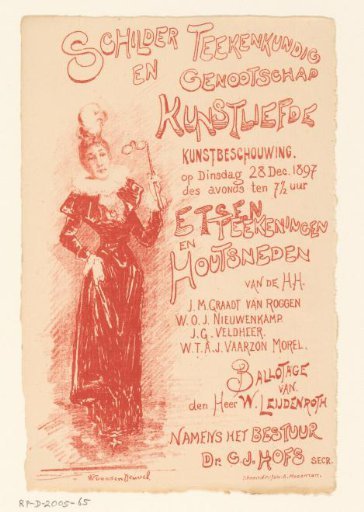 SCHILDER TEEKENKUNDIG
EN GENOOTSCHAP
KUNSTLIEFDE
KUNSTBESCHOUWING.
op Dinsdag 28 Dec. 1897
des avonds ten 7½ uur
ETSEN
TEEKENINGEN
EN
HOUTSNEDEN
VAN DE H.H.
J. M. GRAADT VAN ROGGEN
W. O. J. NIEUWENKAMP.
J. G. VELDHEER.
W. T. A. J. VAARZON MOREL.
BALLOTAGE
VAN
den Heer W. LEIJDENROTH
NAMENS HET BESTUUR
Dr. G. J. HOFS SECR.
RP-D-2005-65